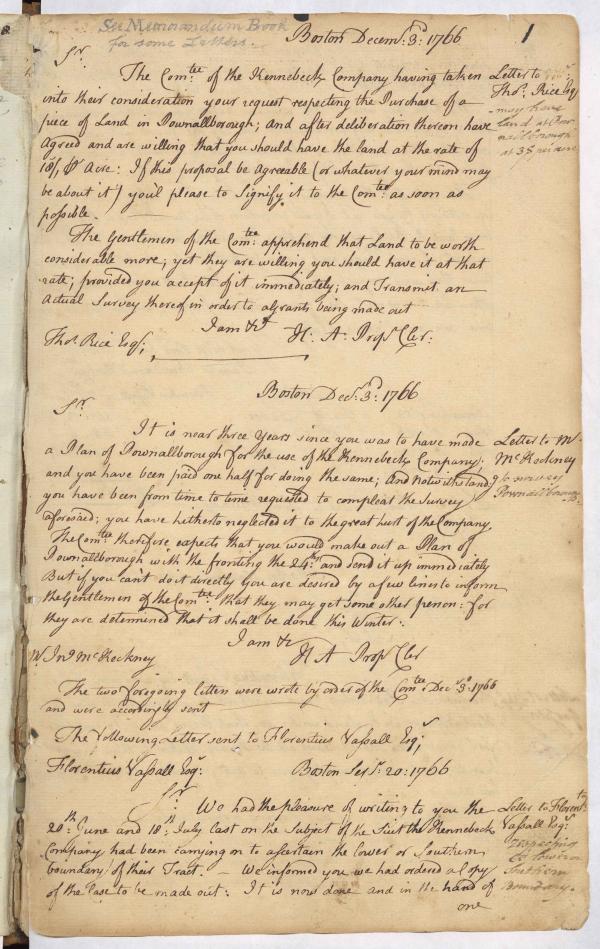 See Memorandum Book
for some Letters.
1
Boston Decemr. 3d: 1766
Sr.
The Comtee of the Kennebeck Company having taken
into their consideration your request respecting the Purchase of a
piece of Land in Pownallborough; And after deliberation thereon have
Agreed and are willing that you should have the land at the rate of
Acre: If this proposal be Agreeable (or whatever your mind may
be about it) you'l please to Signify it to the Comtee: as soon as
possible.
Letter to
Thos. Rice Esqr
may have
land at Pow
nallborough
The Gentlemen of the Comtee: apprehend that Land to be worth
considerable more; yet they are willing you should have it at that
rate; provided you accept of it immediately; and Transmit an
Actual Survey thereof in order to a Grants being made out
I am &c
Thos Rice Esqr;
H: A: Propr. Cler:
Boston Decr. 3d: 1766
Sr.
It is near three Years since you was to have made
a Plan of Pownallborough for the use of the Kennebeck Company;
and you have been paid one half for doing the same; And notwithstandg
you have been from time to time requested to compleat the Survey
aforesaid; you have hitherto neglected it to the great hurt of the Company
The Comtee therefore expects that you would make out a Plan of
Pownallborough with the fronting the 24th: and send it up immediately
But if you can't do it directly you are desired by a few lines to inform
the Gentlemen of the Comtee: that they may get some other person: for
they are determined that it shall be done this Winter:
Letter to Mr.
McKechney
to survey
Pownallborough
I am &c
Mr. Jno McKechney
H A Propr Cler
The two foregoing letters were wrote by order of the Comtee Decr 3d: 1766
and were accordingly sent
The Following Letter sent to Florentius Vassall Esqr;
Florentius Vassall Esqr:
Boston Sepr. 20: 1766
Sr
We had the pleasure of writing to you the
20th: June and 18th: July last on the Subject of the Suit the Kennebeck
Company had been carrying on to ascertain the lower or Southern
boundary of their Tract. — We informed you we had ordered a Copy
of the Case to be made out: It is now done and in the hand of
one
Letter to Florents
Vassall Esqr.
respecting
Southern
Boundary.